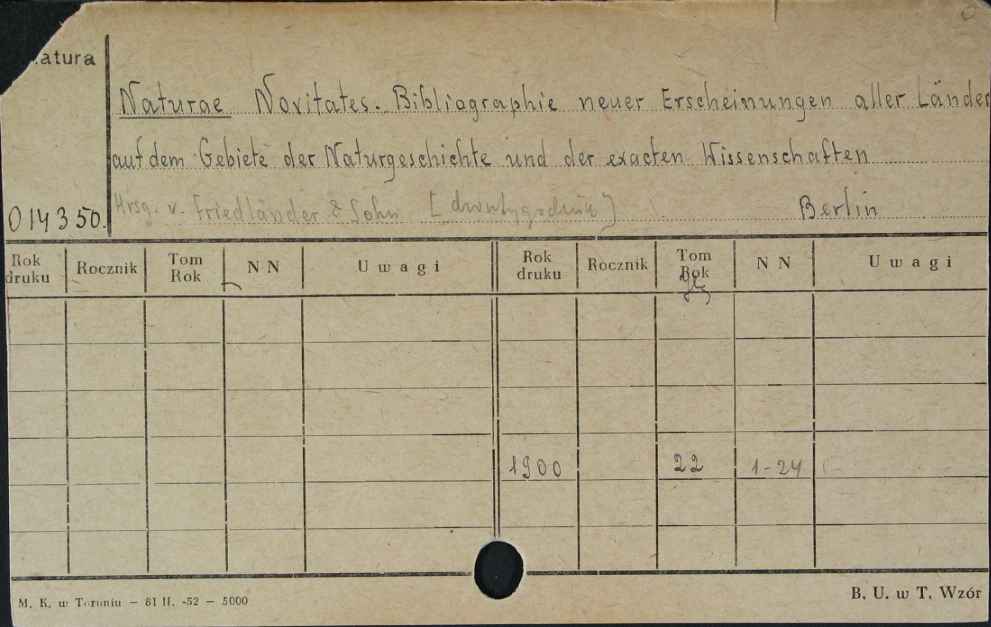 Natura
Naturae Novitates. Bibliographie neuer Erscheinungen aller Länder
auf dem Gebiete der Naturgeschichte und der exacten Wissenschaften
014350. Hrsg. v. Friedländer & Sohn [dwutygodnik] Berlin
Rok druku Rocznik Tom Rok NN Uwagi Rok druku Rocznik Tom Rok NN Uwagi
1900 22 1-24
M. K. w Toruniu — 61 II. -52 — 5000 B. U. w T. Wzór